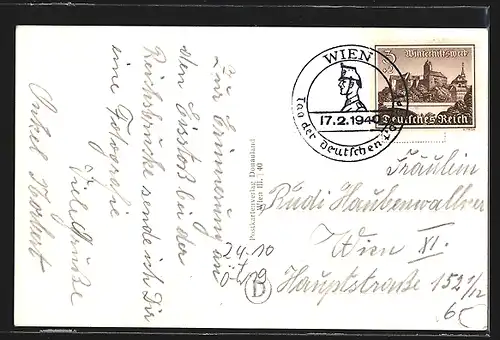 Zur Erinnerung an
den Eisstoß bei der
Reichsbrücke sende ich Dir
eine Fotografie
Viele Grüße
Onkel Norbert
Postkartenverlag Donauland
Wien III. / 40
24.10
19
B
WIEN
17.2.1940
Tag der Deutschen
Winterhilfswerk
Deutsches Reich
Fräulein
Rudi Haubenwallner
Wien XI.
Hauptstraße 152 1/12
65